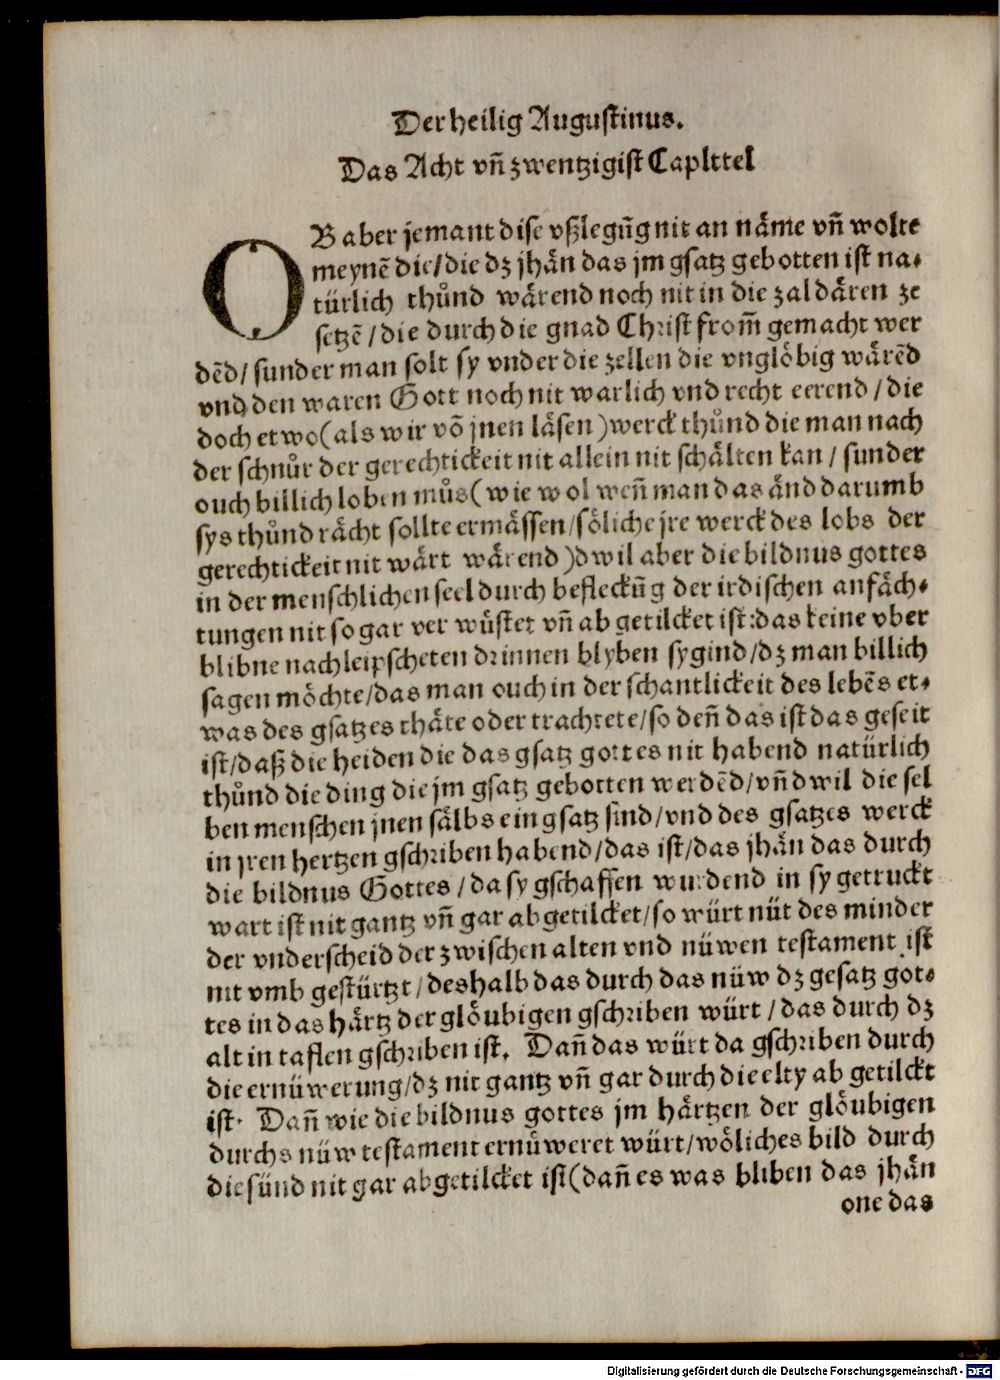 Der heilig Augustinus.
Das Acht vñ zwentzigist Caplttel
OB aber jemant dise vßlegũg nit an näme vñ wolte
meynẽ die/die dz jhän das jm gsatz gebotten ist na⸗
türlich thůnd wärend noch nit in die zal dären ze
setzẽ/die durch die gnad Christ from̃ gemacht wer
dẽd/sunder man solt sy vnder die zellen die vnglöbig wärẽd
vnd den waren Gott noch nit warlich vnd recht eerend/die
doch etwo(als wir võ jnen läsen)werck thůnd die man nach
der schnůr der gerechtickeit nit allein nit schälten kan/sunder
ouch billich loben můs(wie wol weñ man das änd darumb
sys thůnd rächt sollte ermässen/söliche jre werck des lobs der
gerechtickeit nit wärt wärend)dwil aber die bildnus gottes
in der menschlichen seel durch befleckũg der irdischen anfäch⸗
tungen nit so gar verwůstet vñ abgetilcket ist:das keine vber
blibne nachleipscheten drinnen blyben sygind/dz man billich
sagen möchte/das man ouch in der schantlickeit des lebẽs et⸗
was des gsatzes thäte oder trachtete/so deñ das ist das geseit
ist/daß die heiden die das gsatz gottes nit habend natürlich
thůnd die ding die jm gsatz gebotten werdẽd/vñ dwil die sel
ben menschen jnen sälbs ein gsatz sind/vnd des gsatzes werck
in jren hertzen gschriben habend/das ist/das jhän das durch
die bildnus Gottes/da sy gschaffen wurdend in sy getruckt
wart ist nit gantz vñ gar abgetilcket/so würt nüt des minder
der vnderscheid der zwischen alten vnd nüwen testament ist
nit vmb gestürtzt/deshalb das durch das nüw dz gesatz got⸗
tes in das härtz der glöubigen gschriben würt/das durch dz
alt in taflen gschriben ist. Dañ das würt da gschriben durch
die ernüwerung/dz nit gantz vñ gar durch die elty ab getilckt
ist. Dañ wie die bildnus gottes jm härtzen der glöubigen
durchs nüw testament ernüweret würt/wöliches bild durch
die sünd nit gar abgetilcket ist(dañ es was bliben das jhän
one das
Digitalisierung gefördert durch die Deutsche Forschungsgemeinschaft - DFG